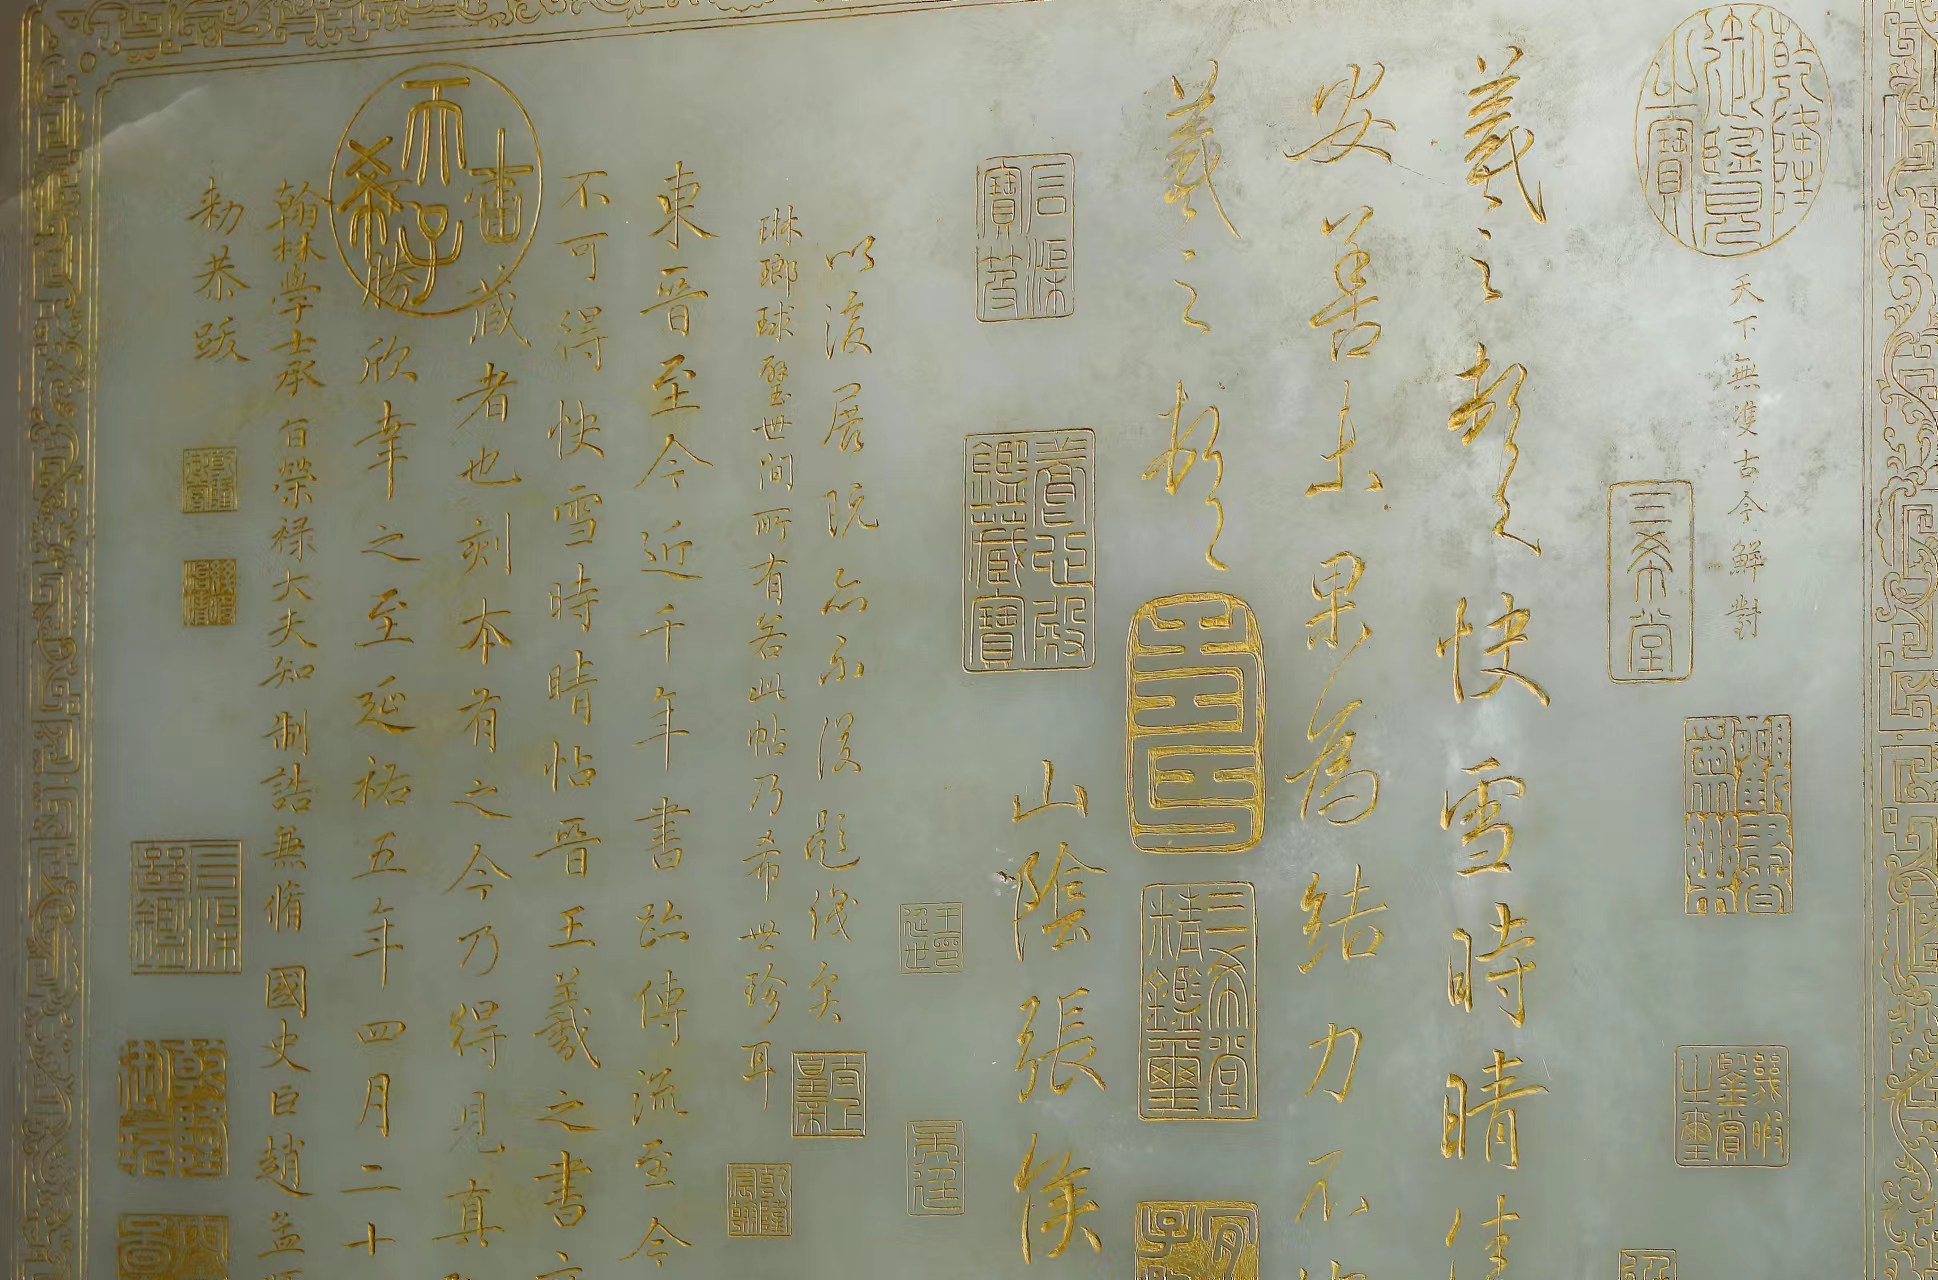 乾隆御覽之寶
天下無雙古今鮮對
三希堂
幾暇鑒賞之璽
羲之頓首快雪時晴佳
安善未果為結力不
羲之頓首
三希堂精鑑璽
山陰張侯
石渠寶笈
養心殿鑑藏寶
以後展玩亦不復題識矣
琳瑯球璧世間所有若此帖乃希世珍耳
太上皇帝
東晉至今近千年書跡傳流至今
不可得快雪時晴帖晉王羲之書
藏者也刻本有之今乃得見真
勝欣幸之至延祐五年四月二十
翰林學士承旨榮祿大夫知制誥兼脩國史臣趙孟
勑恭跋